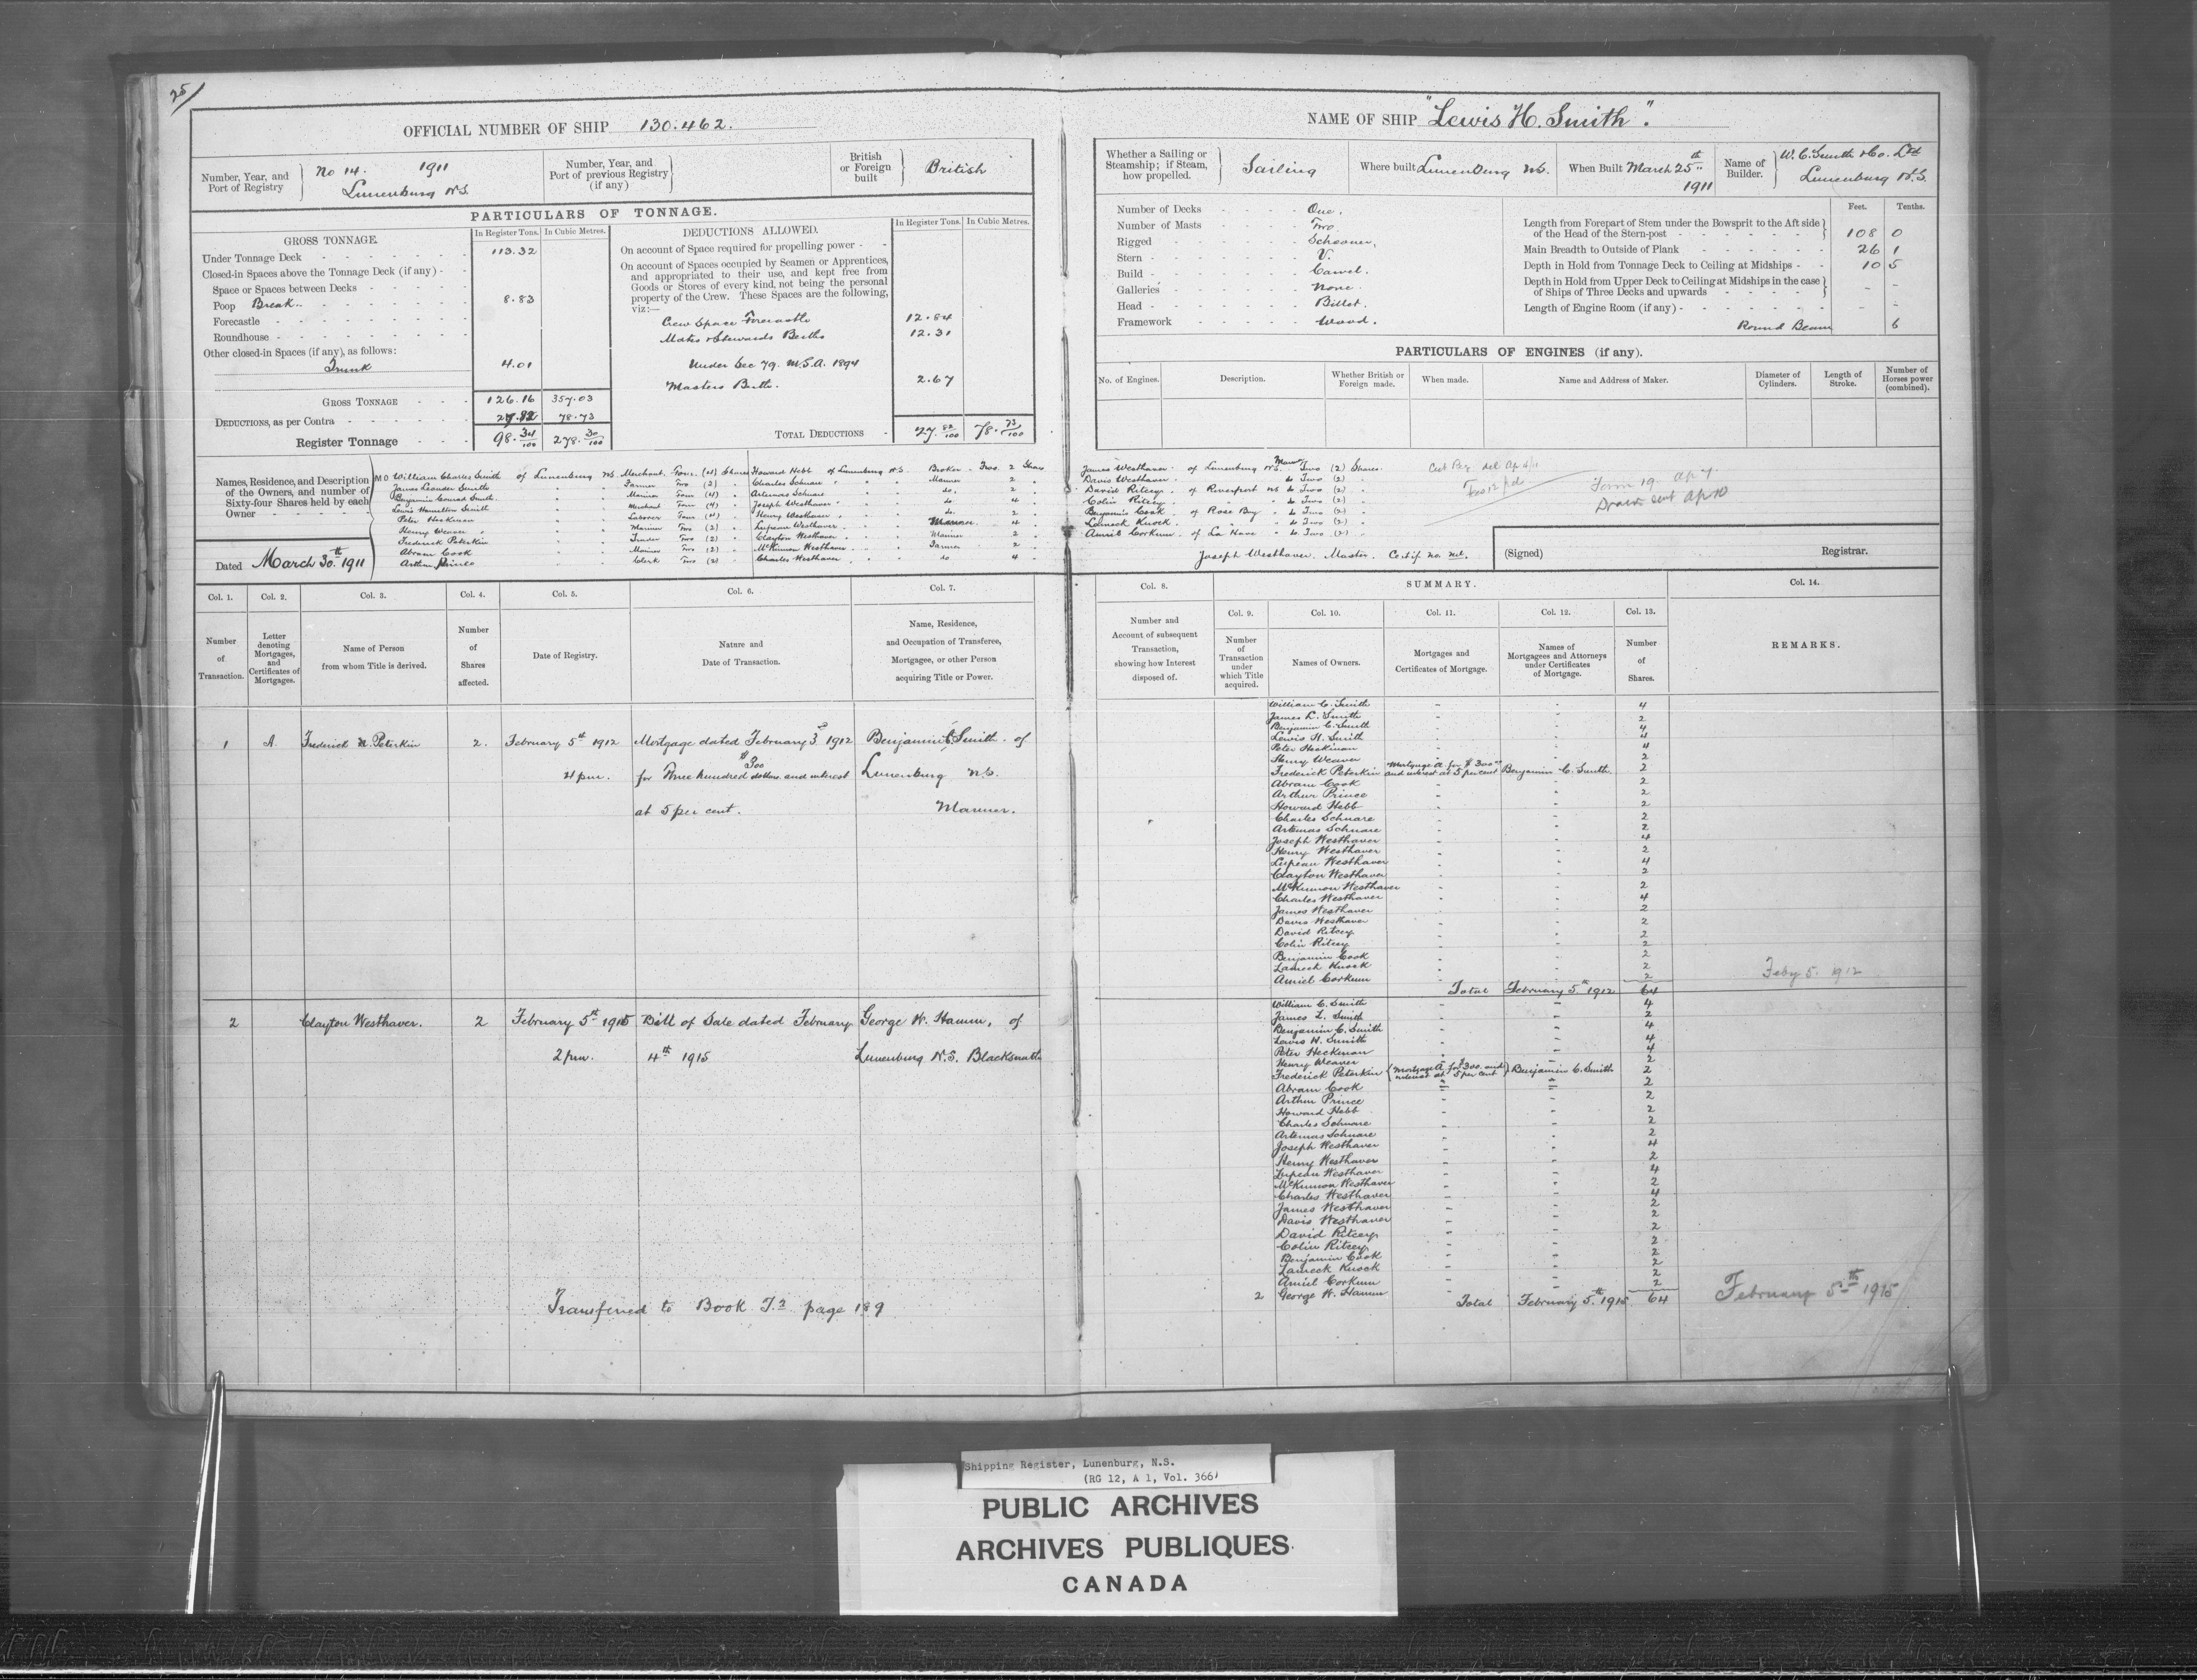 25/
OFFICIAL NUMBER OF SHIP 130.462.
Number, Year, and Port of Registry No 14. 1911 Lunenburg N.S.
Number, Year, and Port of previous Registry (if any)
British or Foreign built British
PARTICULARS OF TONNAGE.
GROSS TONNAGE. In Register Tons. In Cubic Metres.
Under Tonnage Deck 113.32
Closed-in Spaces above the Tonnage Deck (if any) -
Space or Spaces between Decks
Poop Break 8.83
Forecastle
Roundhouse
Other closed-in Spaces (if any), as follows:
Trunk 4.01
GROSS TONNAGE 126.16 357.03
DEDUCTIONS, as per Contra 27.82 78.73
Register Tonnage 98.34/100 278.30/100
DEDUCTIONS ALLOWED. In Register Tons. In Cubic Metres.
On account of Space required for propelling power
On account of Spaces occupied by Seamen or Apprentices,
and appropriated to their use, and kept free from
Goods or Stores of every kind, not being the personal
property of the Crew. These Spaces are the following,
viz:—
Crew Space Forecastle 12.84
Mates & Stewards Berths 12.31
Under Sec 79. M.S.A. 1894
Masters Berth. 2.67
TOTAL DEDUCTIONS 27.82/100 78.73/100
Names, Residence, and Description
of the Owners, and number of
Sixty-four Shares held by each
Owner
M O William Charles Smith of Lunenburg N.S. Merchant Four (4) Shares
James Leander Smith " " Farmer Two (2) "
Benjamin Conrad Smith " " Mariner Four (4) "
Lewis Hamilton Smith " " Merchant Four (4) "
Peter Heckman " " Laborer Four (4) "
Henry Weaver " " Mariner Two (2) "
Frederick Peterkin " " Two (2) "
Abram Cook " " Mariner Two (2) "
Arthur Prince " " Clerk Two (2) "
Howard Hebb of Lunenburg N.S. Broker Two 2 Shares
Charles Schnare " " Mariner 2 "
Artemas Schnare " " do. 2 "
Joseph Westhaver " " do 4 "
Henry Westhaver " " do. 2 "
Lupean Westhaver " " Mariner 4 "
Clayton Westhaver " " Mariner 2 "
McKinnon Westhaver " " Farmer 2 "
Charles Westhaver " " do 4 "
Dated March 30th 1911
NAME OF SHIP "Lewis H. Smith".
Whether a Sailing or Steamship; if Steam, how propelled. Sailing
Where built Lunenburg N.S.
When Built March 25th 1911
Name of Builder. W. C. Smith & Co. Ltd Lunenburg N.S.
Number of Decks One.
Number of Masts Two
Rigged Schooner,
Stern V.
Build Carvel.
Galleries None.
Head Billet.
Framework Wood.
Feet. Tenths.
Length from Forepart of Stem under the Bowsprit to the Aft side
of the Head of the Stern-post 108 0
Main Breadth to Outside of Plank 26 1
Depth in Hold from Tonnage Deck to Ceiling at Midships 10 5
Depth in Hold from Upper Deck to Ceiling at Midships in the case
of Ships of Three Decks and upwards - -
Length of Engine Room (if any) - -
Round Beam 6
PARTICULARS OF ENGINES (if any).
No. of Engines. Description. Whether British or Foreign made. When made. Name and Address of Maker. Diameter of Cylinders. Length of Stroke. Number of Horses power (combined).
James Westhaver of Lunenburg N.S. Marin Two (2) Shares
Davis Westhaver " do Two (2) "
David Ritcey of Riverport N.S. do Two (2) "
Colin Ritcey " " do Two (2) "
Benjamin Cook of Rose Bay " do Two (2) "
Lameck Knock " " do Two (2) "
Amiel Corkum of La Have " do Two (2) "
Form 19. Ap 7.
sent Ap 10
Joseph Westhaver. Master. Certif no. nil.
(Signed) Registrar.
Col. 1. Col. 2. Col. 3. Col. 4. Col. 5. Col. 6. Col. 7.
Number of Transaction.
Letter denoting Mortgages, and Certificates of Mortgages.
Name of Person from whom Title is derived.
Number of Shares affected.
Date of Registry.
Nature and Date of Transaction.
Name, Residence, and Occupation of Transferee, Mortgagee, or other Person acquiring Title or Power.
Col. 8. SUMMARY. Col. 14.
Col. 9. Col. 10. Col. 11. Col. 12. Col. 13.
Number and Account of subsequent Transaction, showing how Interest disposed of.
Number of Transaction under which Title acquired.
Names of Owners.
Mortgages and Certificates of Mortgage.
Names of Mortgagees and Attorneys under Certificates of Mortgage.
Number of Shares.
REMARKS.
1 A. Frederick Peterkin 2. February 5th 1912 Mortgage dated February 3rd 1912 Benjamin C. Smith of
4 pm. for Three hundred dollars and interest Lunenburg N.S.
$300
at 5 per cent. Mariner.
William C. Smith - - 4
James L. Smith 2
Benjamin C. Smith 4
Lewis H. Smith 4
Peter Heckman 4
Henry Weaver 2
Frederick Peterkin Mortgage A for $300 and interest at 5 per cent Benjamin C. Smith 2
Abram Cook 2
Arthur Prince 2
Howard Hebb 2
Charles Schnare 2
Artemas Schnare 2
Joseph Westhaver 4
Henry Westhaver 2
Lupean Westhaver 4
Clayton Westhaver 2
McKinnon Westhaver 2
Charles Westhaver 4
James Westhaver 2
Davis Westhaver 2
David Ritcey 2
Colin Ritcey 2
Benjamin Cook 2
Lameck Knock 2
Amiel Corkum 2
Total February 5th 1912 64
Feby 5. 1912
2 Clayton Westhaver. 2 February 5th 1915 Bill of Sale dated February George W. Hamm, of
2 pm. 4th 1915 Lunenburg N.S. Blacksmith
William C. Smith 4
James L. Smith 2
Benjamin C. Smith 4
Lewis H. Smith 4
Peter Heckman 4
Henry Weaver 2
Frederick Peterkin Mortgage A for $300 and interest at 5 per cent Benjamin C. Smith 2
Abram Cook 2
Arthur Prince 2
Howard Hebb 2
Charles Schnare 2
Artemas Schnare 2
Joseph Westhaver 4
Henry Westhaver 2
Lupean Westhaver 4
McKinnon Westhaver 2
Charles Westhaver 4
James Westhaver 2
Davis Westhaver 2
David Ritcey 2
Colin Ritcey 2
Benjamin Cook 2
Lameck Knock 2
Amiel Corkum 2
2 George W. Hamm
Total February 5th 1915 64
February 5th 1915
Transferred to Book page 189
Shipping Register, Lunenburg, N.S.
(RG 12, A 1, Vol. 366)
PUBLIC ARCHIVES
ARCHIVES PUBLIQUES
CANADA